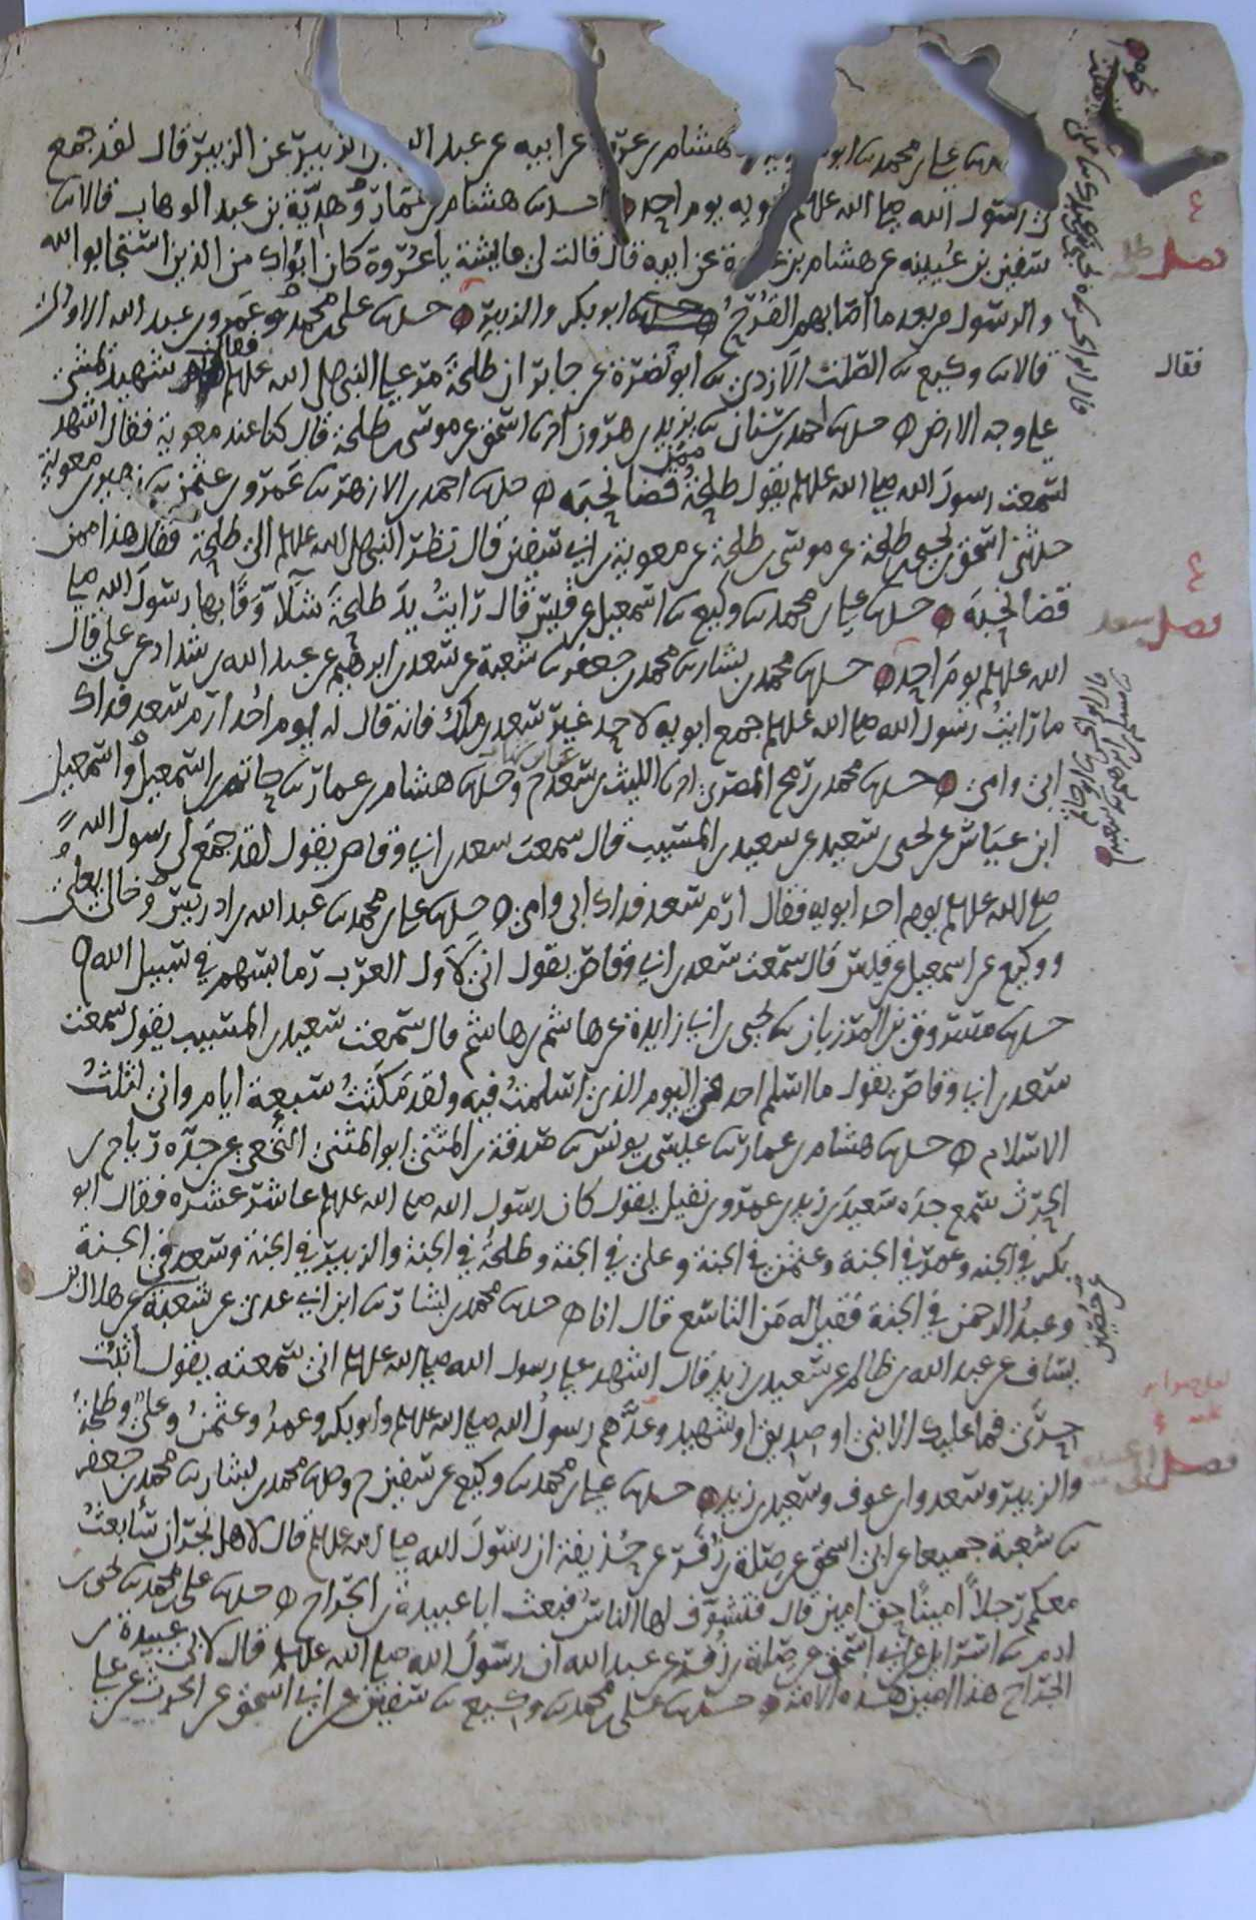 حدثنا علي بن محمد ثنا ابو هشام بن عروة عن ابيه عن عبد الله بن الزبير عن الزبير قال لقد جمع
لي رسول الله صلى الله عليه وسلم ابويه يوم احد حدثنا هشام بن عمار وهدية بن عبد الوهاب قالا ثنا
سفين بن عيينه عن هشام بن عروة عن ابيه قال قالت لي عايشة يا عروة كان ابواك من الذين استجابوا لله
والرسول من بعد ما اصابهم القرح ابو بكر والزبير حدثنا علي بن محمد وعمرو بن عبد الله الاودي
قالا ثنا وكيع ثنا الصلت الازدي ثنا ابو نضرة عن جابر ان طلحة مر على النبي صلى الله عليه وسلم فقال شهيد يمشي
على وجه الارض حدثنا احمد بن سنان ثنا يزيد بن هرون انا اسحق عن موسى بن طلحة قال كنا عند معوية فقال اشهد
لسمعت رسول الله صلى الله عليه وسلم يقول طلحة ممن قضا نحبه حدثنا احمد بن الازهر ثنا عمرو بن عثمن ثنا زهير بن معوية
حدثني اسحق بن يحيى بن طلحة عن موسى بن طلحة عن معوية بن ابي سفين قال نظر النبي صلى الله عليه وسلم الى طلحة فقال هذا ممن
قضا نحبه حدثنا علي بن محمد ثنا وكيع ثنا اسمعيل عن قيس قال رايت يد طلحة شلا وقا بها رسول الله صلى
الله عليه وسلم يوم احد حدثنا محمد بن بشار ثنا محمد بن جعفر ثنا شعبة عن سعد بن ابرهيم عن عبد الله بن شداد عن علي قال
ما رايت رسول الله صلى الله عليه وسلم جمع ابويه لاحد غير سعد بن ملك فانه قال له يوم احد ارم سعد فداك
ابي وامي حدثنا محمد بن رمح المصري انا الليث بن سعد ح وحدثنا هشام بن عمار ثنا حاتم بن اسمعيل واسمعيل
ابن عياش عن يحيى بن سعيد عن سعيد بن المسيب قال سمعت سعد بن ابي وقاص يقول لقد جمع لي رسول الله
صلى الله عليه وسلم يوم احد ابويه فقال ارم سعد فداك ابي وامي حدثنا علي بن محمد ثنا عبد الله بن ادريس وخالي يعلى
ووكيع عن اسمعيل عن قيس قال سمعت سعد بن ابي وقاص يقول اني لاول العرب رما بسهم في سبيل الله
حدثنا مسروق بن المرزبان ثنا يحيى بن ابي زايدة عن هاشم بن هاشم قال سمعت سعيد بن المسيب يقول سمعت
سعد بن ابي وقاص يقول ما اسلم احد في اليوم الذي اسلمت فيه ولقد مكثت سبعة ايام واني لثلث
الاسلام حدثنا هشام بن عمار ثنا عيسى بن يونس ثنا صدقة بن المثنى ابو المثنى النخعي عن جده رياح بن
الحرث سمع جده سعيد بن زيد بن عمرو بن نفيل يقول كان رسول الله صلى الله عليه وسلم عاشر عشره فقال ابو
بكر في الجنه وعمر في الجنة وعثمن في الجنة وعلي في الجنة وطلحة في الجنة والزبير في الجنة وسعد في الجنة
وعبد الرحمن في الجنة فقيل له من التاسع قال انا حدثنا محمد بن بشار ثنا ابن ابي عدي عن شعبة عن هلال بن
يساف عن عبد الله بن ظالم عن سعيد بن زيد قال اشهد على رسول الله صلى الله عليه وسلم اني سمعته يقول اثبت
حرى فما عليك الا نبي او صديق او شهيد وعدهم رسول الله صلى الله عليه وسلم وابو بكر وعمر وعثمن وعلي وطلحة
والزبير وسعد وابن عوف وسعيد بن زيد حدثنا علي بن محمد ثنا وكيع عن سفين ح وحدثنا محمد بن بشار ثنا محمد بن جعفر
ثنا شعبة جميعا عن ابي اسحق عن صلة بن زفر عن حذيفة ان رسول الله صلى الله عليه وسلم قال لاهل نجران سابعث
معكم رجلا امينا حق امين قال فتشوف لها الناس فبعث ابا عبيدة بن الجراح حدثنا علي بن محمد ثنا يحيى بن
ادم ثنا اسرايل عن ابي اسحق عن صلة بن زفر عن عبد الله ان رسول الله صلى الله عليه وسلم قال لابي عبيدة بن
الجراح هذا امين هذه الامة حدثنا علي بن محمد ثنا وكيع ثنا سفين عن ابي اسحق عن الحرث عن علي
فضل طلحة
فقال
فضل سعد
عن حصين
فضل ابي عبيدة